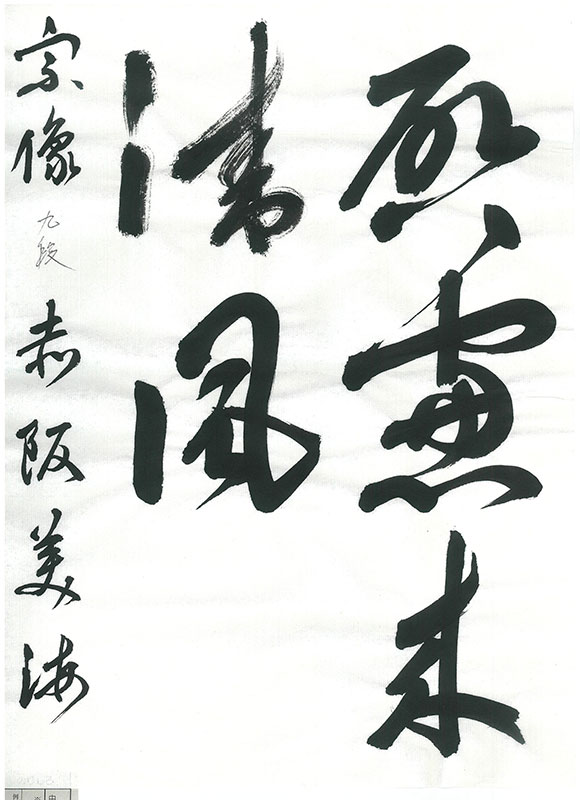 慮来
清風
宗像 九段 赤阪美海